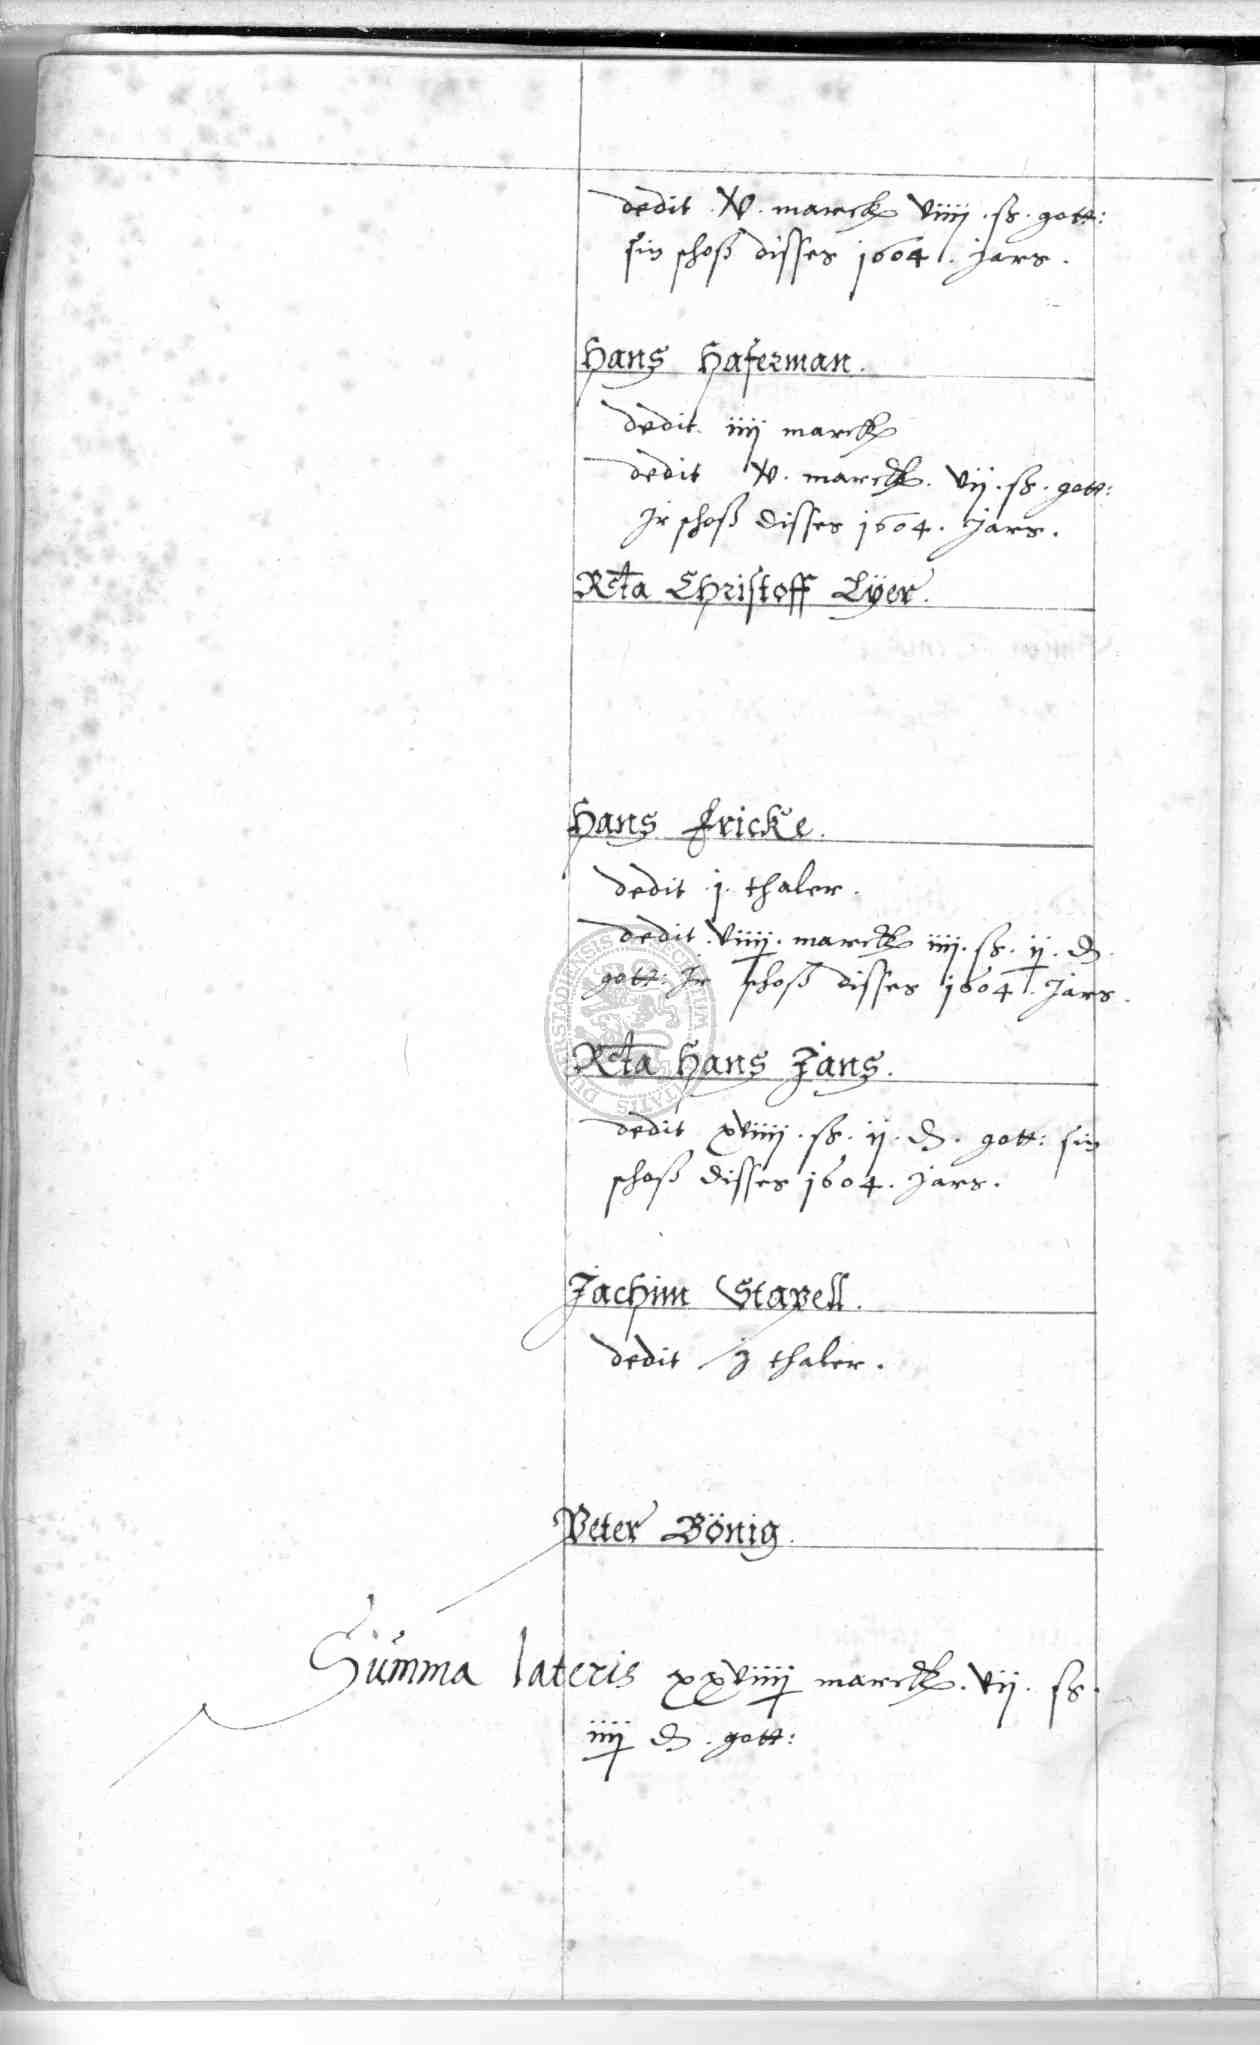 dedit . v . marck viiij . ß . gott:
sin schoß disses 1604 . Jars .
Hans Haferman .
dedit . iiij marck
dedit v . marck . vij . ß . gott:
Jr schoß disses 1604 . Jars .
Rcta Christoff Lÿer .
Hans Fricke .
dedit . j . thaler .
dedit . viiij . marck iiij . ß . ij . ₰ .
gott: Jr schoß disses 1604 . Jars .
Rcta Hans Jans .
dedit xviiij . ß . ij . ₰ . gott: sin
schoß disses 1604 . Jars .
Jachim Stapell .
dedit thaler .
Peter Bönig .
Summa lateris xxviiij marck . vij . ß .
iiij ₰ . gott: